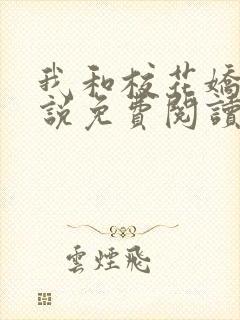 我和校花嬌
説免費閱讀
雲煙飛